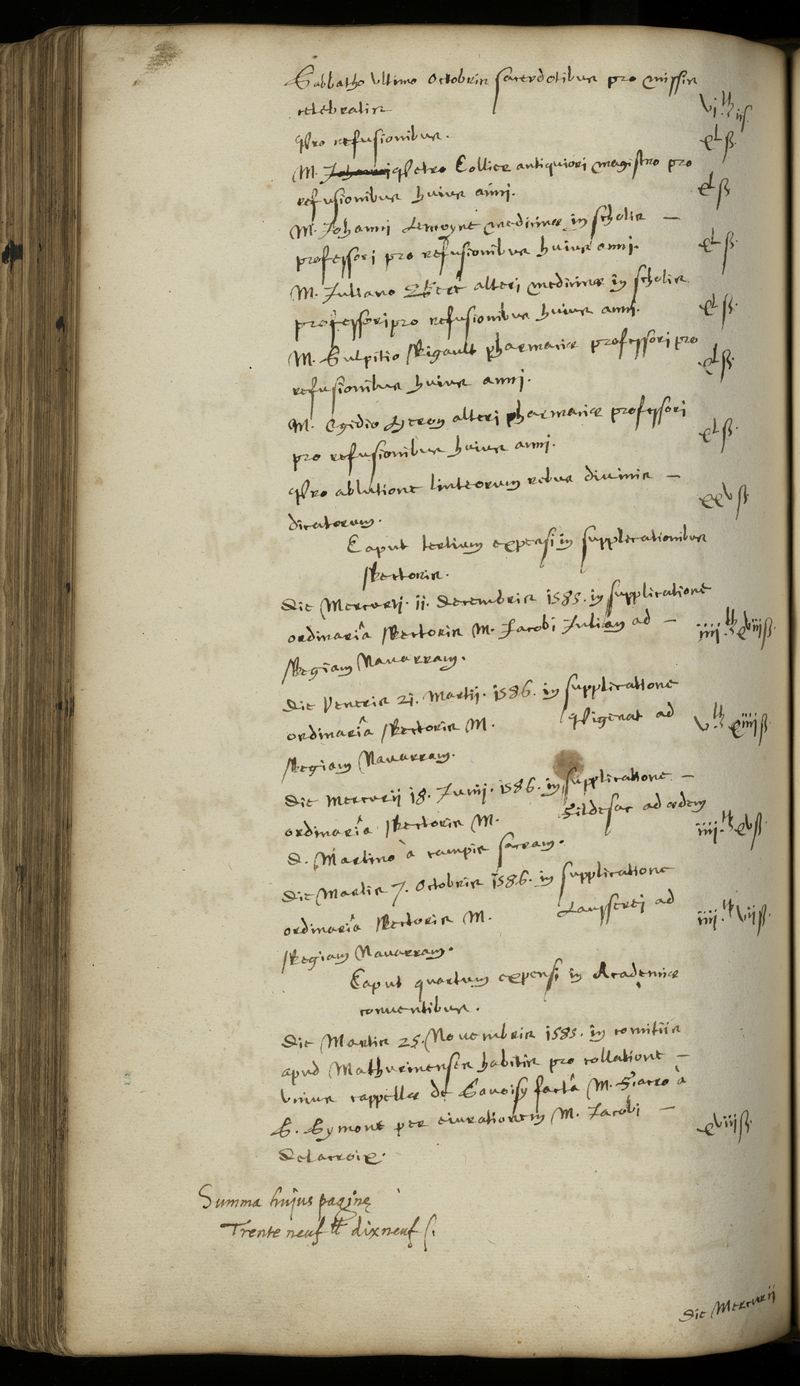 Sabbatho ultimo octobris sacerdotibus pro missis
celebratis vi.lt iis.
Pro refusionibus. xlß
M. Johanni Petro Collier antiquiori magistro pro
refusionibus huius anni. xlß
M. Johanni Lemoyne medicinæ in scholis —
professori pro refusionibus huius anni. xlß
M. Juliano alteri medicinæ in scholis
professori pro refusionibus huius anni. xlß
M. Sulpitio Rigault pharmaciæ professori pro
refusionibus huius anni. xlß
M. Egidio Heron alteri pharmaciæ professori
pro refusionibus huius anni. xlß
Pro ablutione linteorum rebus divinis —
dicatorum. xxvß
Caput tertium expensi in supplicationibus
Rectoris.
Die Mercurij. 11. Decembris 1585. in supplicatione
ordinariâ Rectoris M. Jacobi Julian ad — iiii.lt xviiiß
Regiam Navarram.
Die Veneris 21. Martij. 1586. in supplicatione
ordinariâ Rectoris M. Pigenat ad v.lt xiiiiß
Regiam Navarram.
Die Mercurii 18. Junij. 1586. in supplicatione —
ordinariâ Rectoris M. Gildesac ad ædem
D. Martino à campis sacram. iiii.lt xvß
Die Martis 7. Octobris 1586. in supplicatione
ordinariâ Rectoris M. Laysserej ad iiii.lt viiß
Regiam Navarram.
Caput quartum expensi in Academiæ
conventibus.
Die Martis 25. Novembris 1585. in comitiis
apud Mathurinenses habitis pro collatione —
unius cappellæ de Savoisy factâ M. à
S. Symone per eiurationem M. Jacobi — xviiiß
Delacroix.
Summa hujus paginę
Trente neuf lt dixneuf s.
Die Mercurij